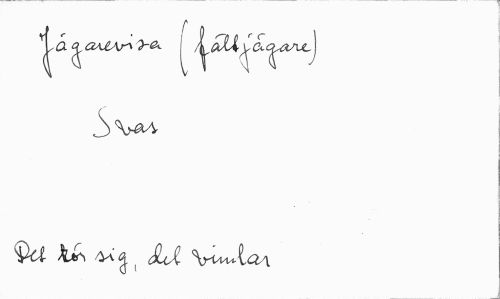 Jägarevisa (fältjägare)
Svas
Det rör sig, det vimlar